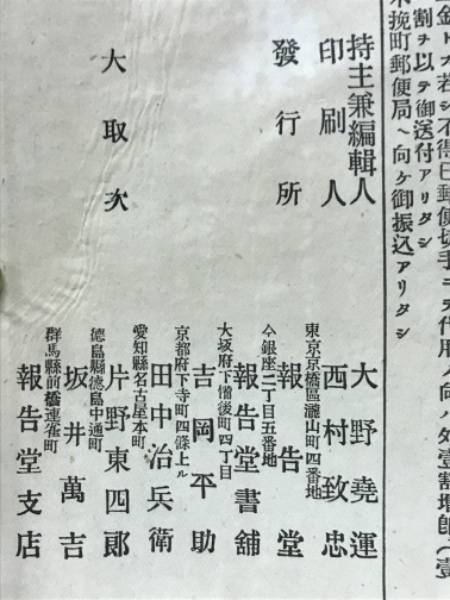 金トス若シ不得已郵便切手ニテ代用ノ向ハ処壹割増即(壹
割ヲ以テ御送付アリタシ
木挽町郵便局ヘ向ケ御振込アリタシ
持主兼編輯人 大野堯運
印刷人 西村致忠
東京京橋區瀧山町四番地
發行所 報告堂
今銀座二丁目五番地
報告堂書舖
大坂府下備後町四丁目
吉岡平助
京都府下寺町四條上ル
大取次 田中治兵衛
愛知縣名古屋本町
片野東四郎
德島縣德島中通町
坂井萬吉
群馬縣前橋連雀町
報告堂支店